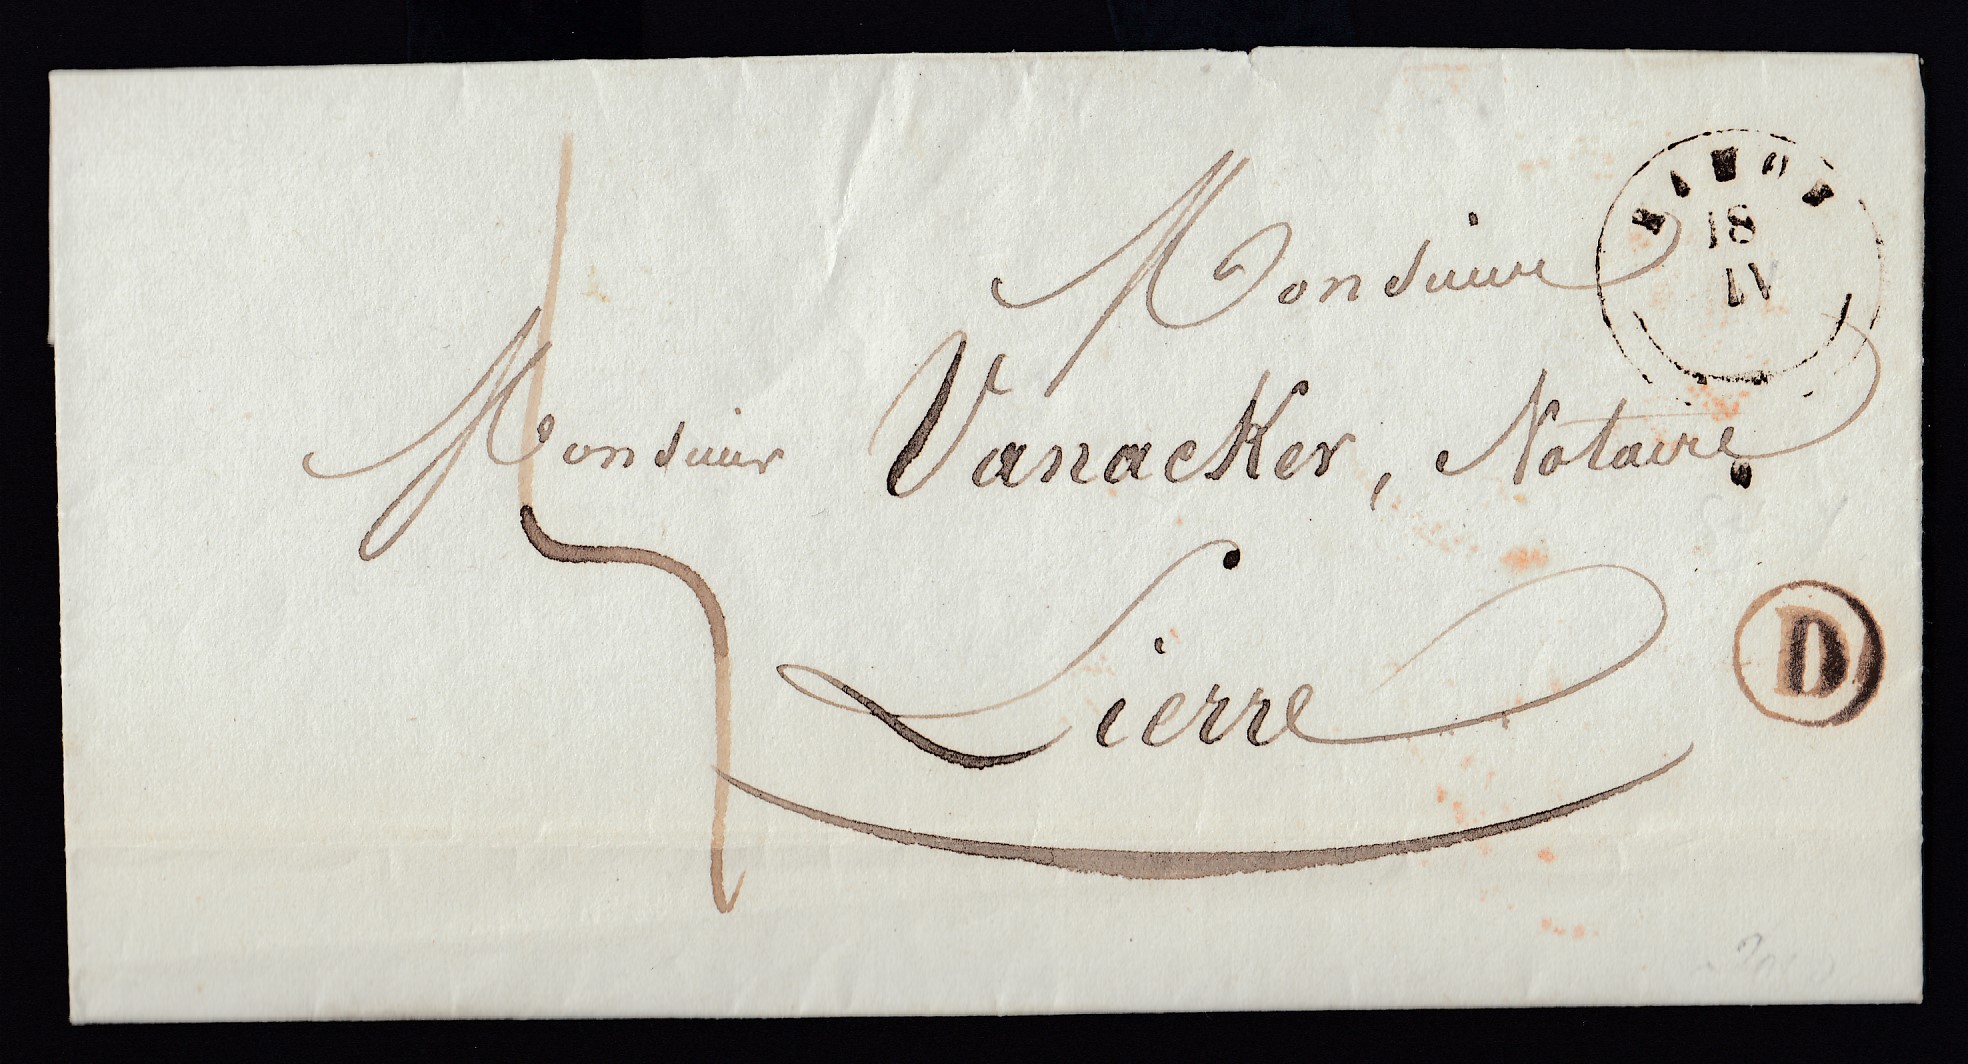 Monsieur
Monsieur Vanacker, Notaire
Lierre
18
IV
D